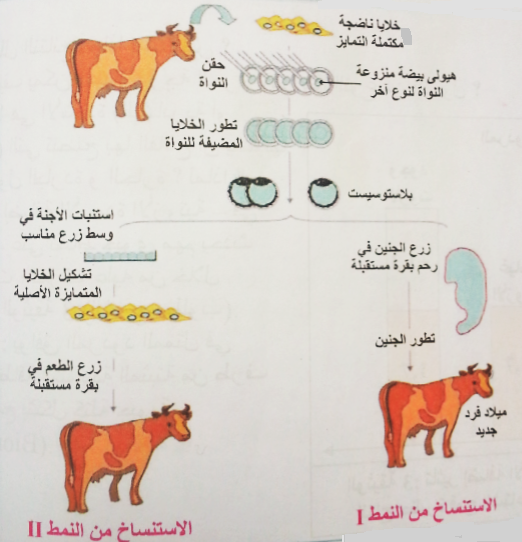 خلايا ناضجة
مكتملة التمايز
حقن
النواة
هيولى بيضة منزوعة
النواة لنوع آخر
تطور الخلايا
المضيفة للنواة
بلاستوسيست
استنبات الأجنة في
وسط زرع مناسب
زرع الجنين في
رحم بقرة مستقبلة
تشكيل الخلايا
المتمايزة الأصلية
تطور الجنين
زرع الطعم في
بقرة مستقبلة
ميلاد فرد
جديد
الاستنساخ من النمط I
الاستنساخ من النمط II